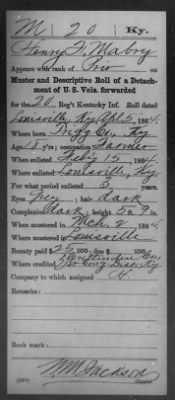 M. | 20 | Ky.
Henry F. Mabry
Appears with rank of Priv on
Muster and Descriptive Roll of a Detach-
ment of U. S. Vols. forwarded
for the 20 Reg't Kentucky Inf. Roll dated
Louisville, Ky. Apl 5, 1864.
Where born Trigg Co. Ky
Age 18 y'rs; occupation Farmer
When enlisted Feby 15, 1864.
Where enlisted Louisville, Ky.
For what period enlisted 3 years.
Eyes Grey; hair dark
Complexion dark; height 5 ft. 9 in.
When mustered in Mch. 2, 1864
Where mustered in Louisville
Bounty paid $ 25 100; due $ 100
Where credited
Company to which assigned H.
Remarks:
Book mark:
W M Jackson
Copyist.